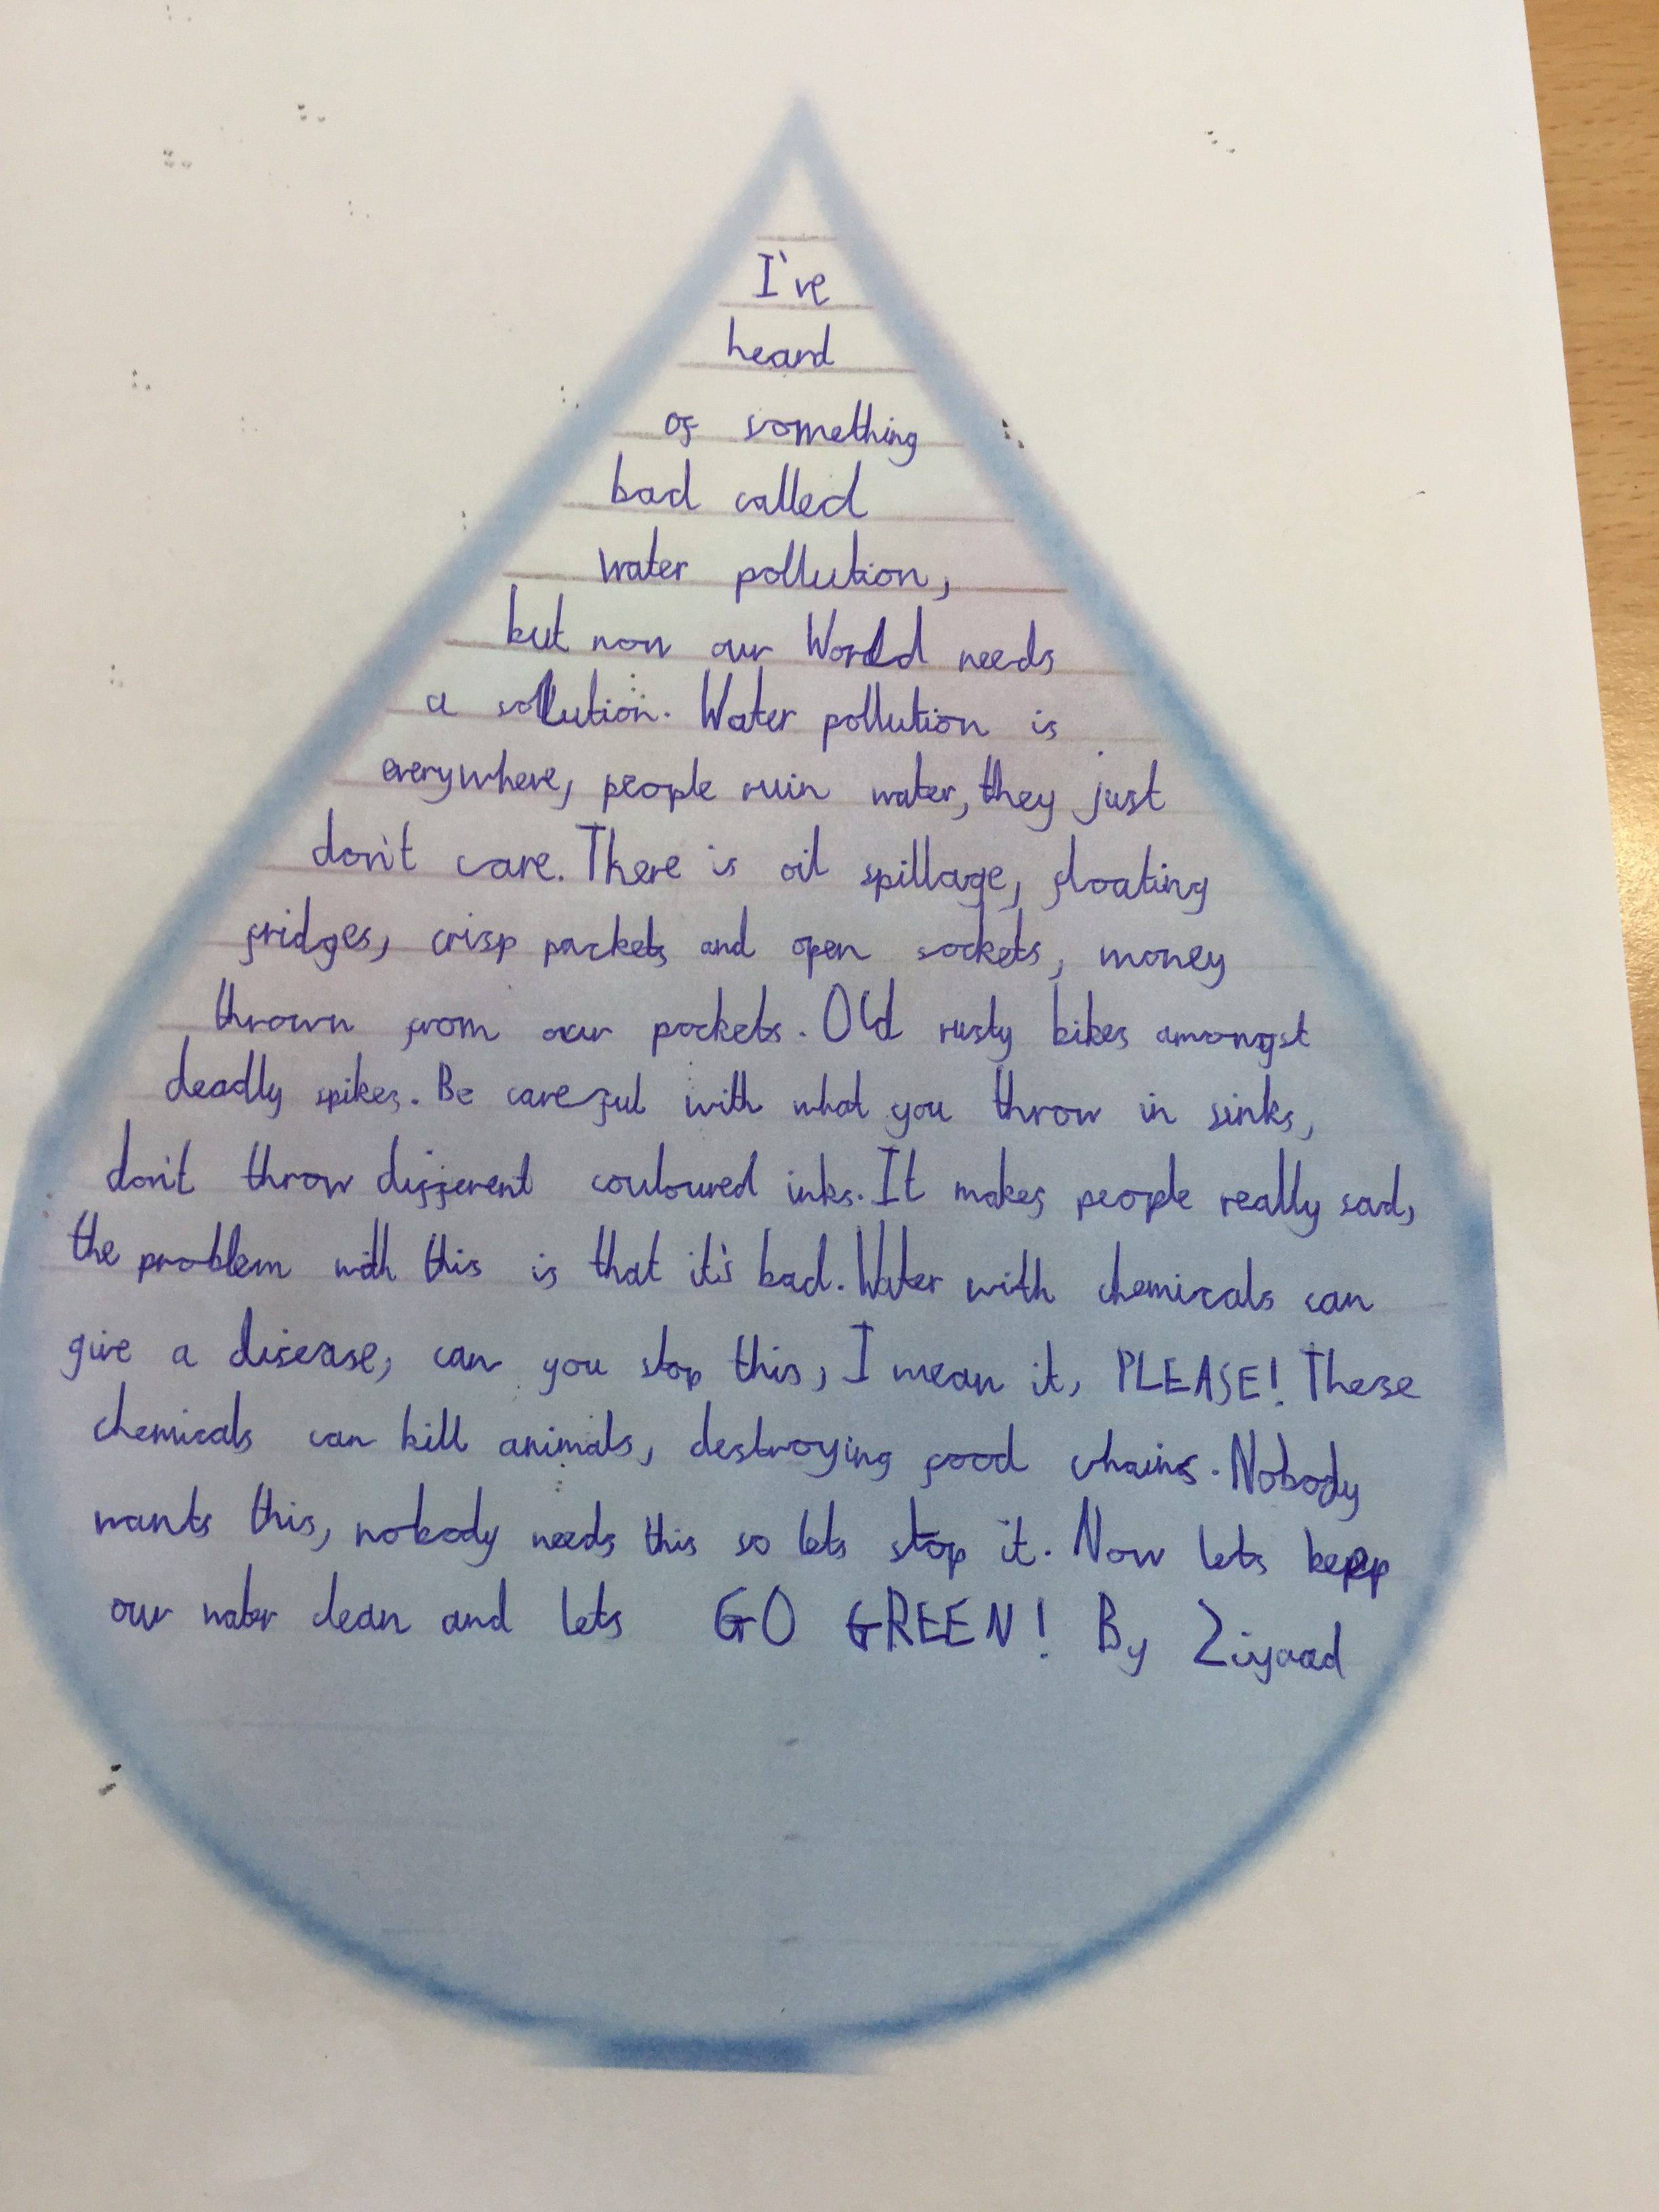 I've
heard
of something
bad called
water pollution,
but now our World needs
a sollution. Water pollution is
everywhere, people ruin water, they just
don't care. There is oil spillage, floating
fridges, crisp packets and open sockets, money
thrown from our pockets. Old rusty bikes amongst
deadly spikes. Be careful with what you throw in sinks,
don't throw different couloured inks. It makes people really sad,
the problem with this is that it's bad. Water with chemicals can
give a disease, can you stop this, I mean it, PLEASE! These
chemicals can kill animals, destroying food chains. Nobody
wants this, nobody needs this so lets stop it. Now lets keep
our water clean and lets GO GREEN! By Ziyaad